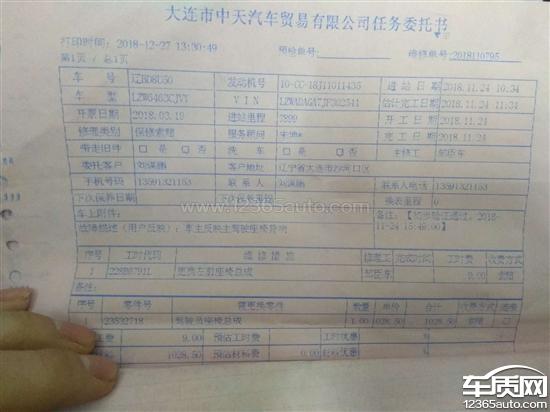 大连市中天汽车贸易有限公司任务委托书
打印时间: 2018-12-27 13:30:49 预检单号: 维修单号: 2018110795
第1页 / 总1页
车 号 辽BD8U50 发动机号 进 站 日 期 2018.11.24 10:34
车 型 LZW6463CJVY V I N 估计完工日期 2018.11.24 11:34
开票日期 2018.03.10 进站里程 7899 开 工 日 期 2018.11.24
修理类别 保修索赔 服务顾问 完 工 日 期 2018.11.24
带走旧件 □ 是 □ 否 洗 车 □ 是 □ 否 车修工
委托客户 客户地址
手机号码 13591321153 联 系 人 联系人电话 13591321153
下次保养日期 下次保养里程 换表里程 0
车上附件: 2018-
11-24 15:48:00】
故障描述(用户反映): 车主反映主驾驶座椅异响
序号 工时代码 维 修 措 施 修理工 完成时长 工时费 收费方式
1 更换左前座椅总成 9.00 索赔
备注:
序号 零件号 需更换零件 数量 单价 合计 收费方式 选装
1 23532718 驾驶员座椅总成 1.00 1028.50 1028.50 索赔 □
9.00 预估工时费 工时优惠 %
1028.50 预估材料费 0.00 %
www.12365auto.com
车质网
12365auto.com